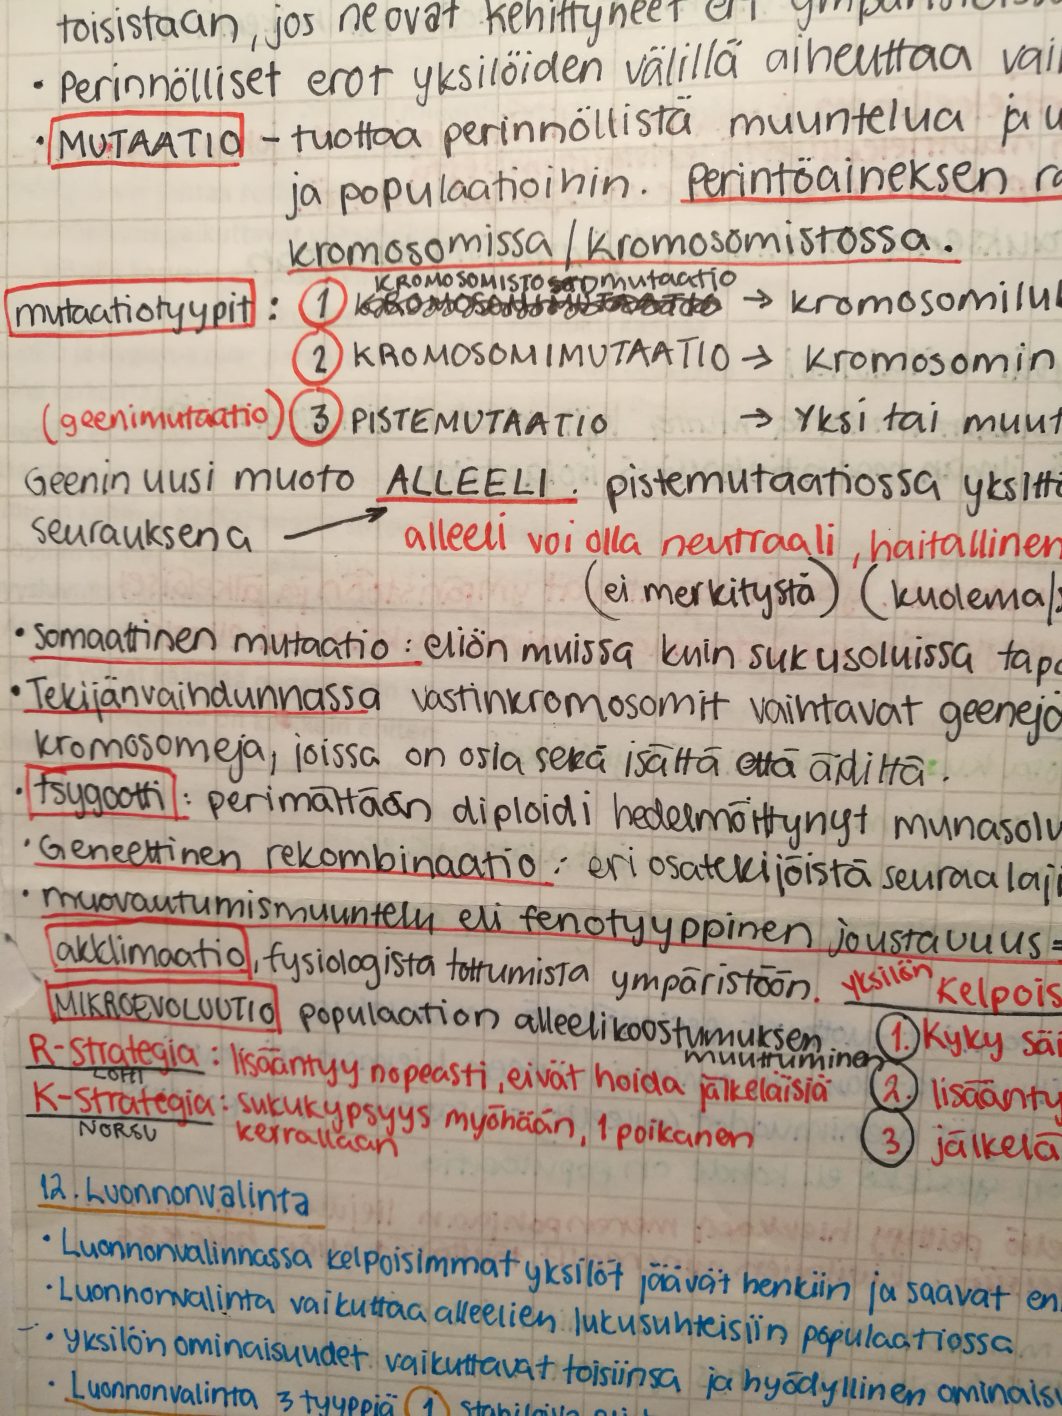 toisistaan, jos ne ovat kehittyneet eri
• perinnölliset erot yksilöiden välillä aiheuttaa
• MUTAATIO – tuottaa perinnöllistä muuntelua ja
ja populaatioihin. perintöaineksen
kromosomissa/kromosomistossa.
KROMOSOMISTOmutaatio
mutaatiotyypit: 1 → kromosomiluk
2 KROMOSOMIMUTAATIO → kromosomin
(geenimutaatio) 3 PISTEMUTAATIO → Yksi tai muut
Geenin uusi muoto ALLEELI. pistemutaatiossa yksittä
seurauksena → alleeli voi olla neutraali, haitallinen
(ei merkitystä) (kuolema/
• somaattinen mutaatio: eliön muissa kuin sukusoluissa tapa
• Tekijänvaihdunnassa vastinkromosomit vaihtavat geenejä
kromosomeja, joissa on osia sekä isältä että äidiltä.
• tsygootti: perimältään diploidi hedelmöittynyt munasolu
• Geneettinen rekombinaatio: eri osatekijöistä seuraa laji
• muovautumismuuntelu eli fenotyyppinen joustavuus =
akklimaatio, fysiologista tottumista ympäristöön. yksilön kelpois
MIKROEVOLUUTIO populaation alleelikoostumuksen muuttuminen 1. Kyky säi
R-strategia: lisääntyy nopeasti, eivät hoida jälkeläisiä 2. lisäänty
K-strategia: sukukypsyys myöhään, 1 poikanen 3 jälkelä
NORSU kerrallaan
12. Luonnonvalinta
• Luonnonvalinnassa kelpoisimmat yksilöt jäävät henkiin ja saavat en
• Luonnonvalinta vaikuttaa alleelien lukusuhteisiin populaatiossa
• yksilön ominaisuudet vaikuttavat toisiinsa ja hyödyllinen ominaisu
• Luonnonvalinta 3 tyyppiä 1